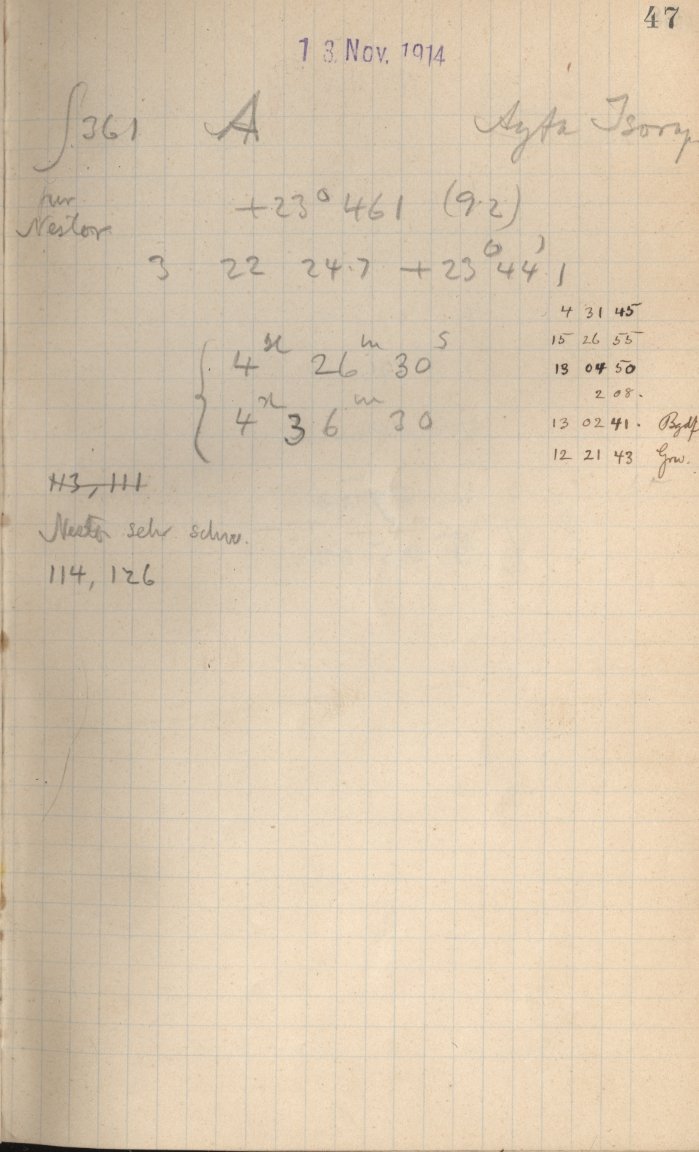 47
13 Nov. 1914
361 A
für
Nestor
+23° 461 (9.2)
3 22 24.7 +23° 44',1
4 31 45
15 26 55
4ʰ 26ᵐ 30ˢ
13 04 50
2 08.
4ʰ 36ᵐ 30
13 02 41. Bgdf
12 21 43 Grw.
113, 111
Nestor sehr schw.
114, 126